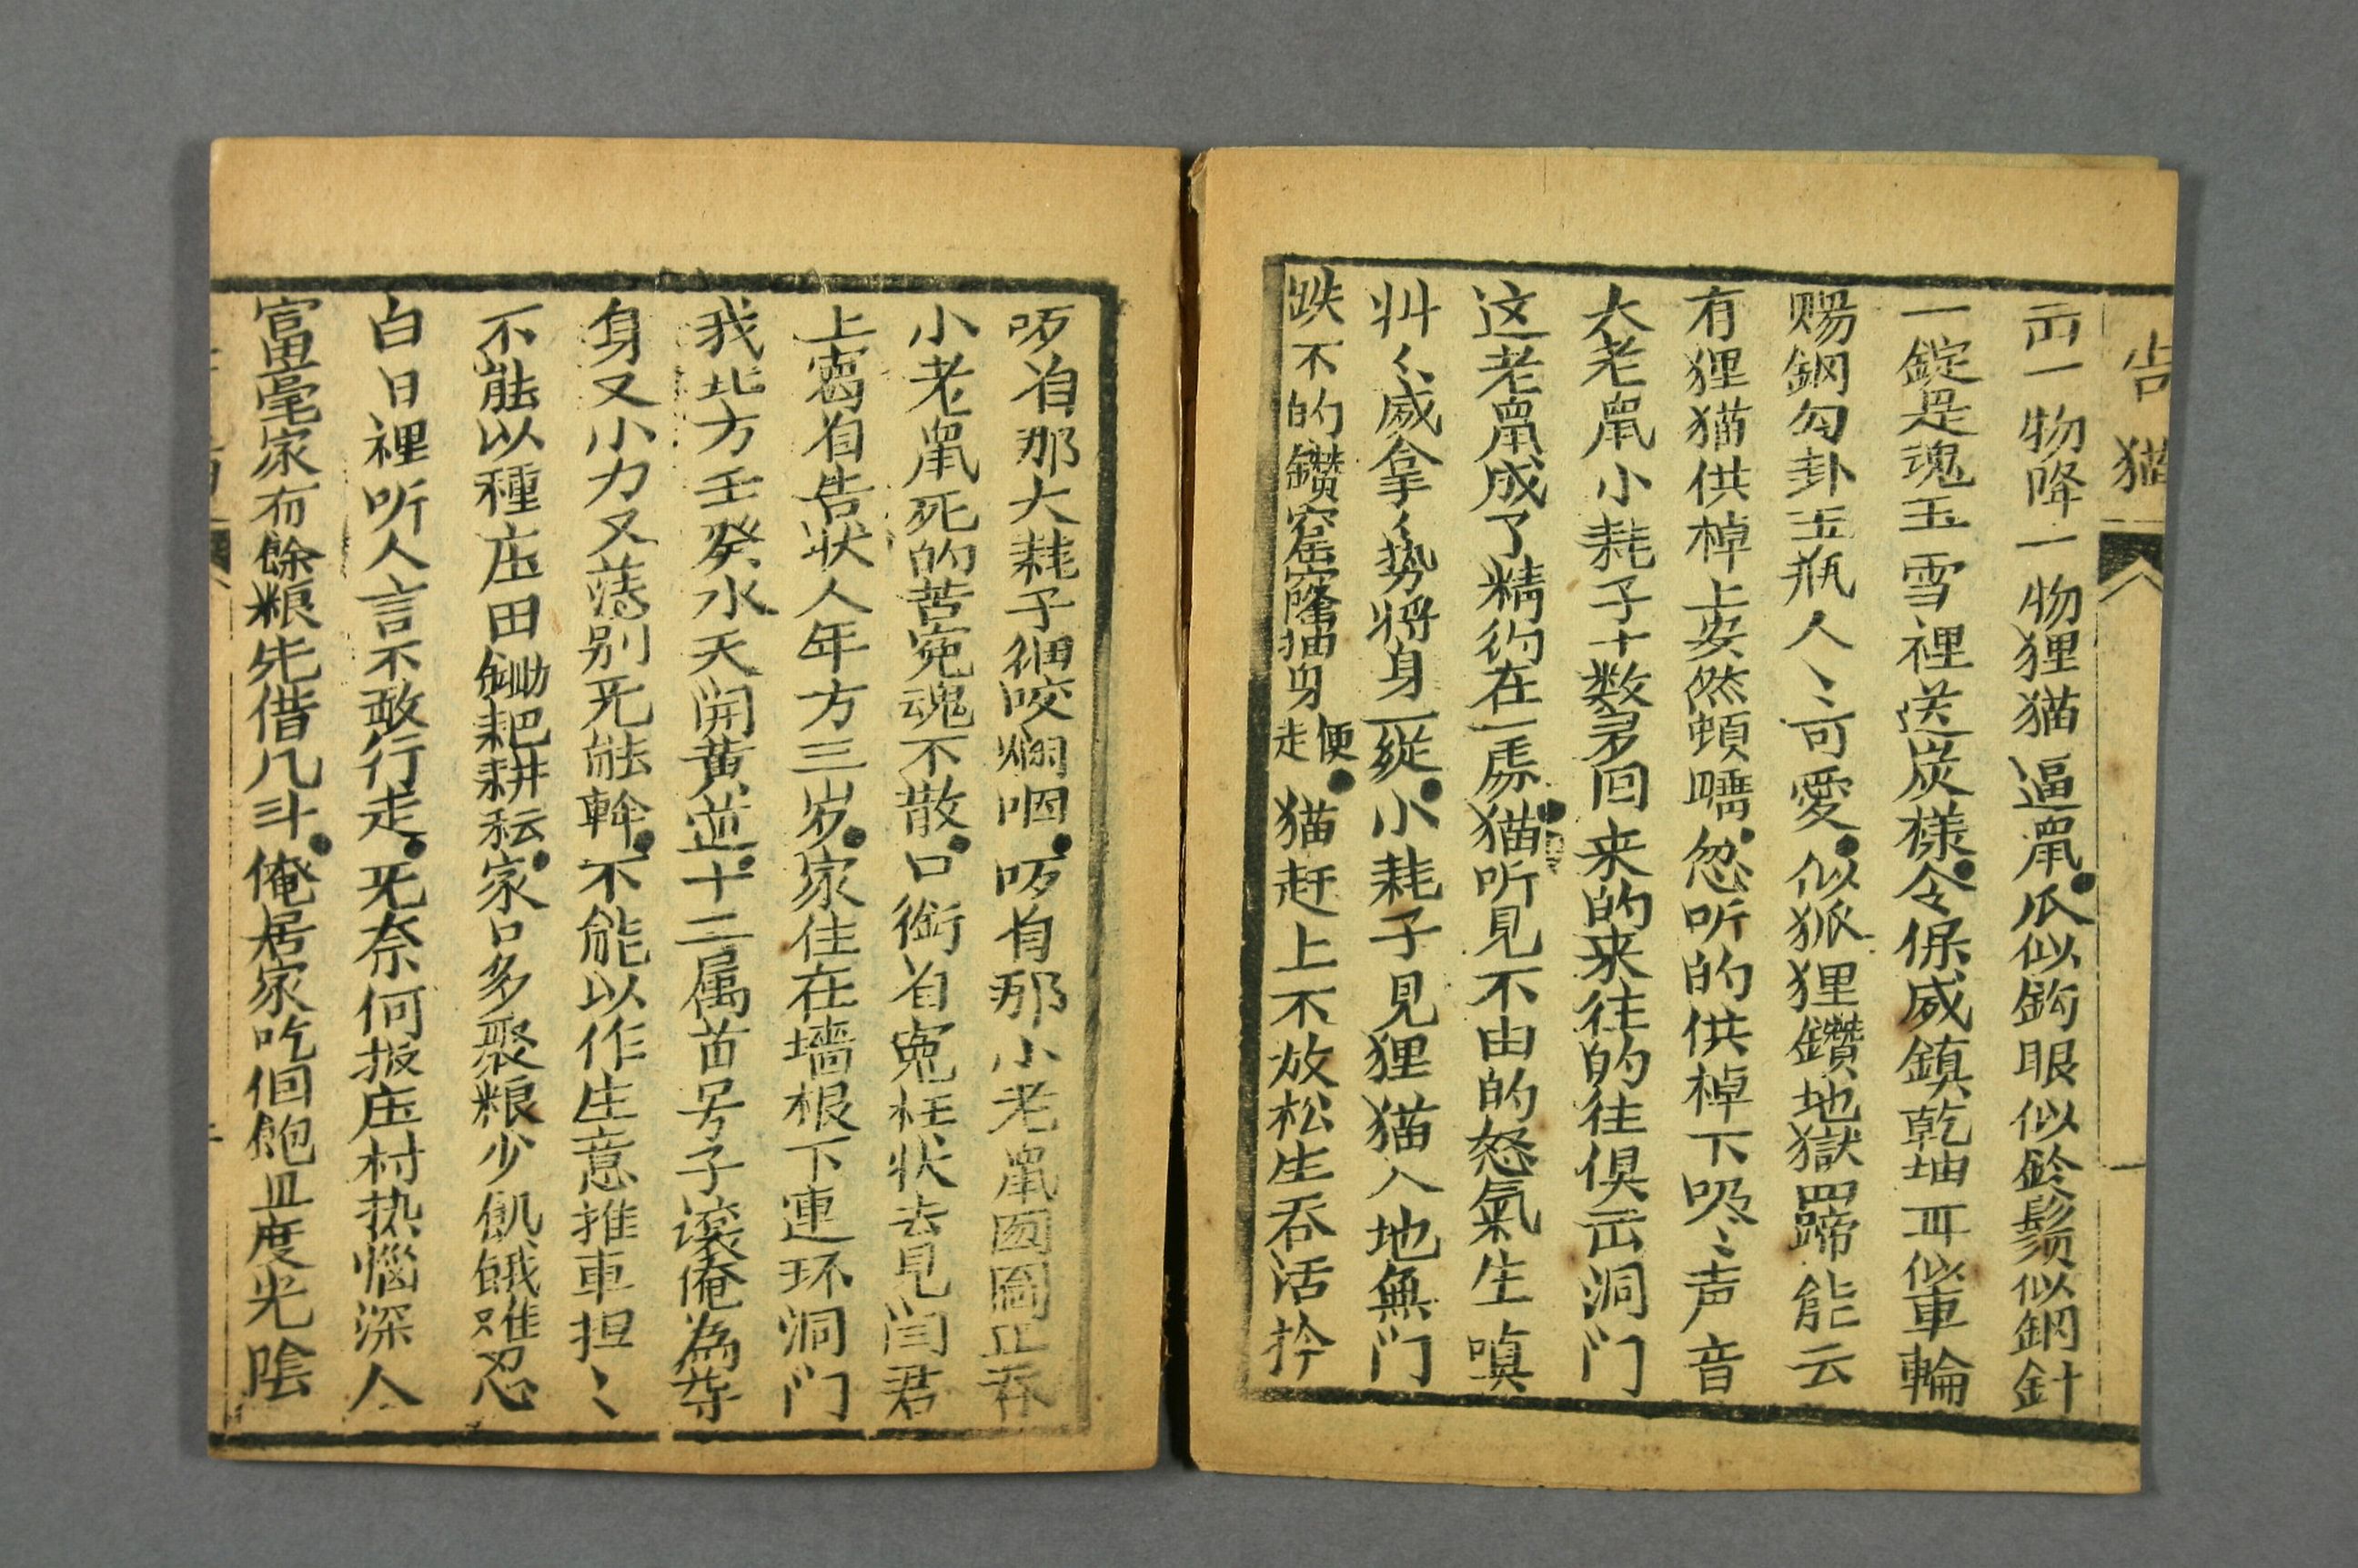 告猫
一
一物降一物狸猫逼鼠爪似鈎眼似鈴鬚似鋼針
一錠是魂玉雪裡送炭樣令保威鎮乾坤耳似車輪
赐鋼勾卦玉瓶人〻可愛似狐狸鑽地獄四蹄能云
有狸猫供棹上安然頓忽听的供棹下吸〻声音
大老鼠小耗子十数多回来的来往的往俱出洞门
这老鼠成了精約在一處猫听見不由的怒氣生嗔
威拿势將身一縱小耗子見狸猫入地無门
跌不的鑽窟窿抽身便走猫赶上不放松生吞活
那大耗子個咬爛咽那小老鼠囫圇正吞
小老鼠死的苦冤魂不散口銜冤枉状去見闫君
上寫告状人年方三岁家住在墻根下連环洞门
我北方壬癸水天開黄道十二属首号子滚俺為尊
身又小力又蕩别无能幹不能以作生意推車担〻
不能以種庄田鋤耙耕耘家口多聚粮少飢餓难忍
白日裡听人言不敢行走无奈何扳庄村热惱深人
富豪家有餘粮先借几斗俺居家吃個飽且度光陰